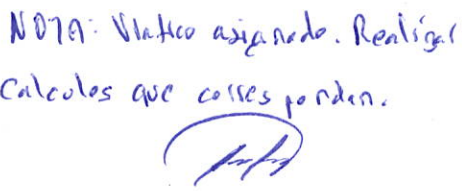 NOTA: Viatico asignado. Realizar
Calculos que correspondan.